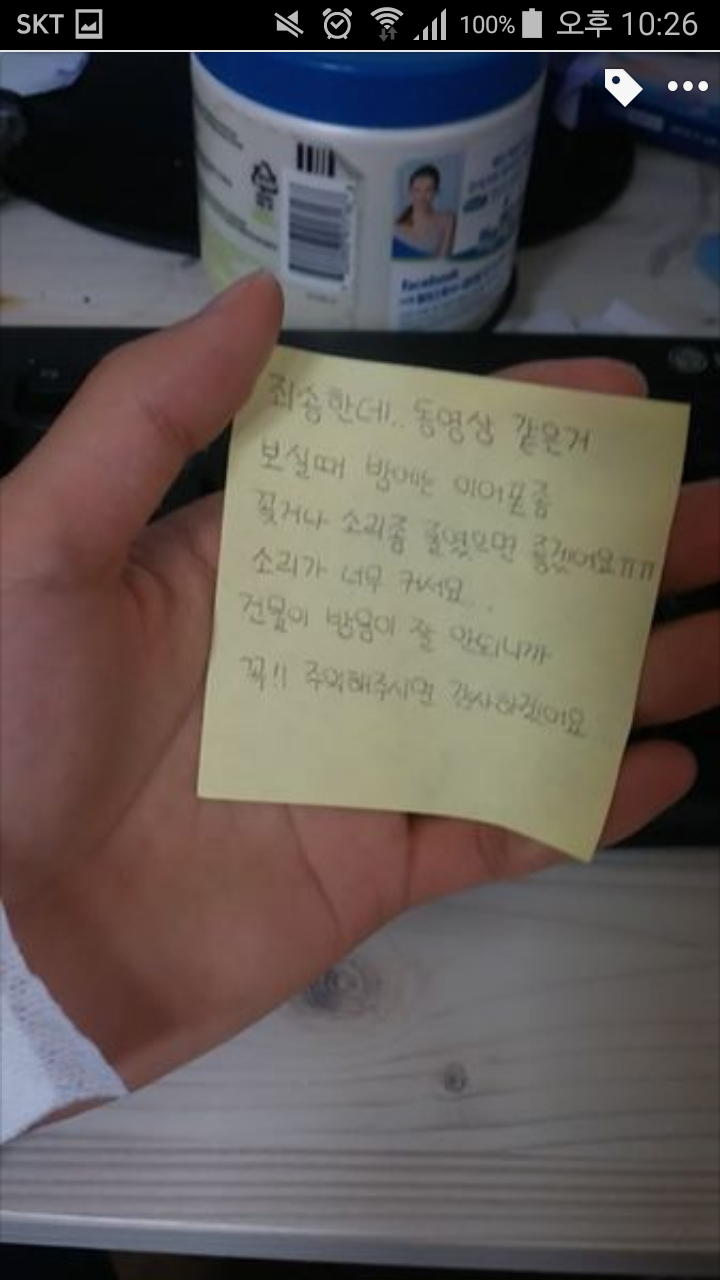 SKT 100% 오후 10:26
facebook
죄송한데!.. 동영상 같은거
보실때 밤에는 이어폰좀
꽂거나 소리좀 줄였으면 좋겠어요ㅠㅠ
소리가 너무 커서요...
건물이 방음이 잘 안되니까
꼭!! 주의해주시면 감사하겠어요